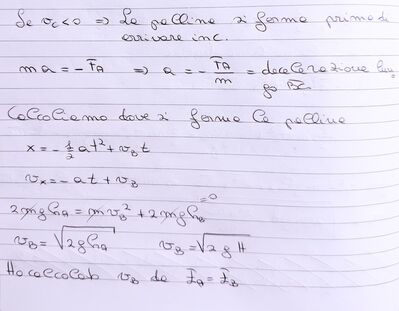 Se v_c<0 => La pallina si ferma prima di
arrivare in c.
ma = -F_A => a = - F_A/m = decelerazione lun=
go BC
Calcoliamo dove si ferma la pallina
x = -1/2 at² + v_B t
v_x = -at + v_B
2mgh_A = mv_B² + 2mgh_B =0
v_B = √2gh_A v_B = √2gH
Ho calcolato v_B da E_A = E_B